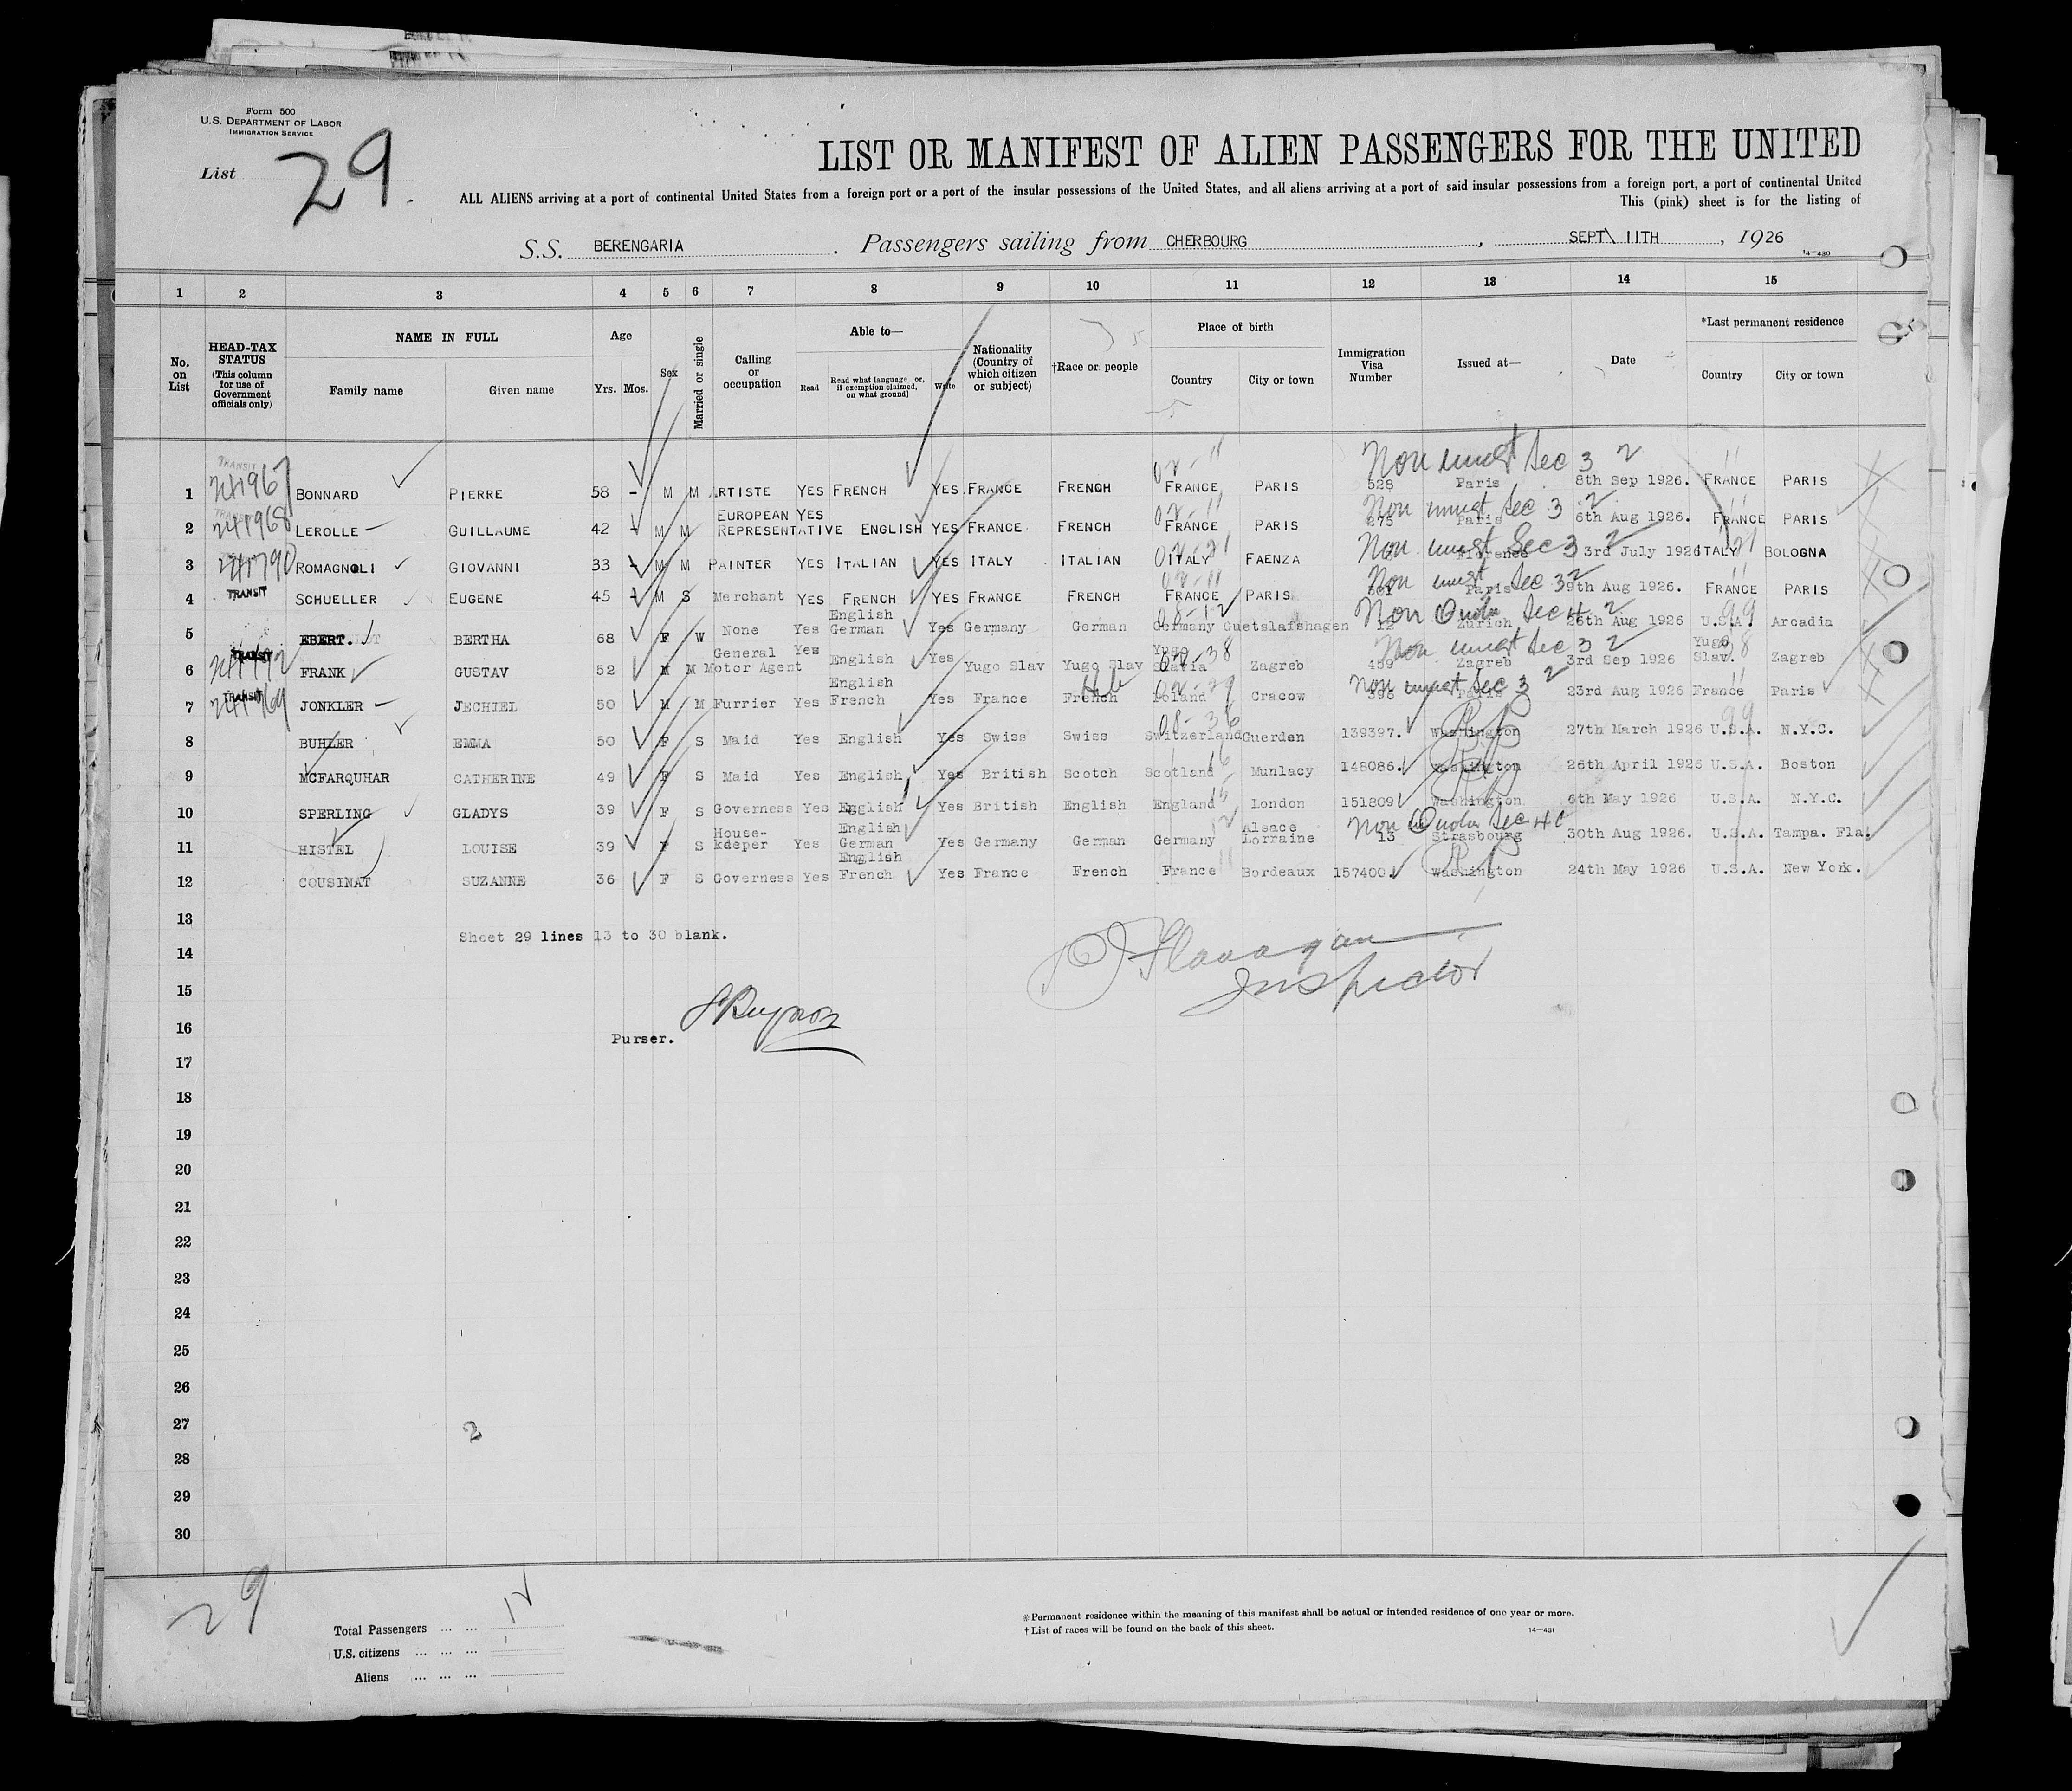 Form 500
U.S. DEPARTMENT OF LABOR
IMMIGRATION SERVICE
List 29
LIST OR MANIFEST OF ALIEN PASSENGERS FOR THE UNITED
ALL ALIENS arriving at a port of continental United States from a foreign port or a port of the insular possessions of the United States, and all aliens arriving at a port of said insular possessions from a foreign port, a port of continental United
This (pink) sheet is for the listing of
S.S. BERENGARIA. Passengers sailing from CHERBOURG, SEPT\ 11TH, 1926
14—430
1 2 3 4 5 6 7 8 9 10 11 12 13 14 15
No. on List
HEAD-TAX STATUS (This column for use of Government officials only)
NAME IN FULL
Family name Given name
Age
Yrs. Mos.
Sex
Married or single
Calling or occupation
Able to—
Read Read what language or, if exemption claimed, on what ground) Write
Nationality (Country of which citizen or subject)
†Race or people
Place of birth
Country City or town
Immigration Visa Number
Issued at—
Date
*Last permanent residence
Country City or town
1 TRANSIT BONNARD PIERRE 58 - M M ARTISTE YES FRENCH YES FRANCE FRENCH FRANCE PARIS 528 Paris 8th Sep 1926. FRANCE PARIS
2 LEROLLE GUILLAUME 42 - M M EUROPEAN REPRESENTATIVE YES ENGLISH YES FRANCE FRENCH FRANCE PARIS Paris 6th Aug 1926. FRANCE PARIS
3 ROMAGNOLI GIOVANNI 33 - M M PAINTER YES ITALIAN YES ITALY ITALIAN ITALY FAENZA Florence 3rd July 1926 ITALY BOLOGNA
4 TRANSIT SCHUELLER EUGENE 45 - M S Merchant YES FRENCH YES FRANCE FRENCH FRANCE PARIS Paris Aug 1926. FRANCE PARIS
5 EBERT. BERTHA 68 F W None Yes English German Yes Germany German Germany Guetslafshagen 12 Zurich 26th Aug 1926 U.S.A. Arcadia
6 TRANSIT FRANK GUSTAV 52 M M General Motor Agent Yes English Yes Yugo Slav Yugo Slav Yugo Slavia Zagreb 459 Zagreb 3rd Sep 1926 Yugo Slav. Zagreb
7 TRANSIT JONKLER JECHIEL 50 M M Furrier Yes English French Yes France French Poland Cracow Paris 23rd Aug 1926 France Paris
8 BUHLER EMMA 50 F S Maid Yes English Yes Swiss Swiss Switzerland Guerden 139397. Washington 27th March 1926 U.S.A. N.Y.C.
9 MCFARQUHAR CATHERINE 49 F S Maid Yes English Yes British Scotch Scotland Munlacy 148086. Washington 26th April 1926 U.S.A. Boston
10 SPERLING GLADYS 39 F S Governess Yes English Yes British English England London 151809 Washington 6th May 1926 U.S.A. N.Y.C.
11 HISTEL LOUISE 39 F S House-kdeper Yes English German Yes Germany German Germany Alsace Lorraine 13 Strasbourg 30th Aug 1926. U.S.A. Tampa. Fla.
12 COUSINAT SUZANNE 36 F S Governess Yes English French Yes France French France Bordeaux 157400. Washington 24th May 1926 U.S.A. New York.
13
Sheet 29 lines 13 to 30 blank.
14
Flanagan
Inspector
15
16
Purser.
17
18
19
20
21
22
23
24
25
26
27 2
28
29
30
29
Total Passengers ... ... 12
U.S. citizens ... ... ...
Aliens ... ... ...
* Permanent residence within the meaning of this manifest shall be actual or intended residence of one year or more.
† List of races will be found on the back of this sheet.
14—431